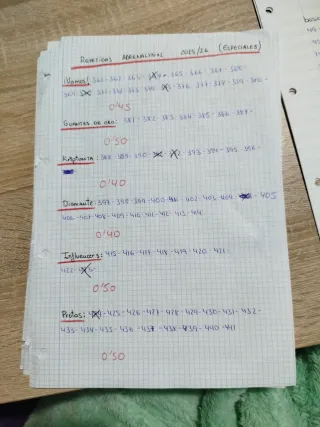 REPETIDAS ADRENALYN XL 2025/26 (ESPECIALES)
¡Vamos!: 361 - 362 - 363 - 365 - 366 - 367 - 368 -
369 - 371 - 372 - 373 - 374 - 376 - 377 - 378 - 379 - 380 -
0'45
GUANTES DE ORO: 381 - 382 - 383 - 384 - 385 - 386 - 387 -
0'50
Kryptonita: 388 - 389 - 390 - 393 - 394 - 395 - 396 -
0'40
Diamante: 397 - 398 - 399 - 400 - 401 - 402 - 403 - 404 - 405
406 - 407 - 408 - 409 - 410 - 411 - 412 - 413 - 414
0'40
Influencers: 415 - 416 - 417 - 418 - 419 - 420 - 421 -
422 -
0'50
Protas: 425 - 426 - 427 - 428 - 429 - 430 - 431 - 432 -
433 - 434 - 435 - 436 - 437 - 438 - 439 - 440 - 441
0'50